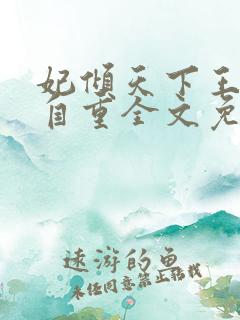 妃倾天下王
自重全文免
远游的鱼
未经同意禁止转载